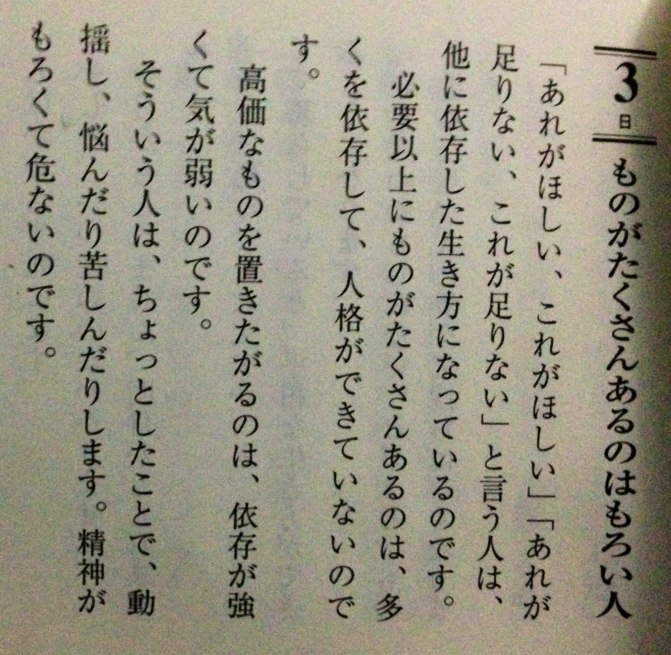 3日 ものがたくさんあるのはもろい人
「あれがほしい、これがほしい」「あれが
足りない、これが足りない」と言う人は、
他に依存した生き方になっているのです。
必要以上にものがたくさんあるのは、多
くを依存して、人格ができていないので
す。
高価なものを置きたがるのは、依存が強
くて気が弱いのです。
そういう人は、ちょっとしたことで、動
揺し、悩んだり苦しんだりします。精神が
もろくて危ないのです。